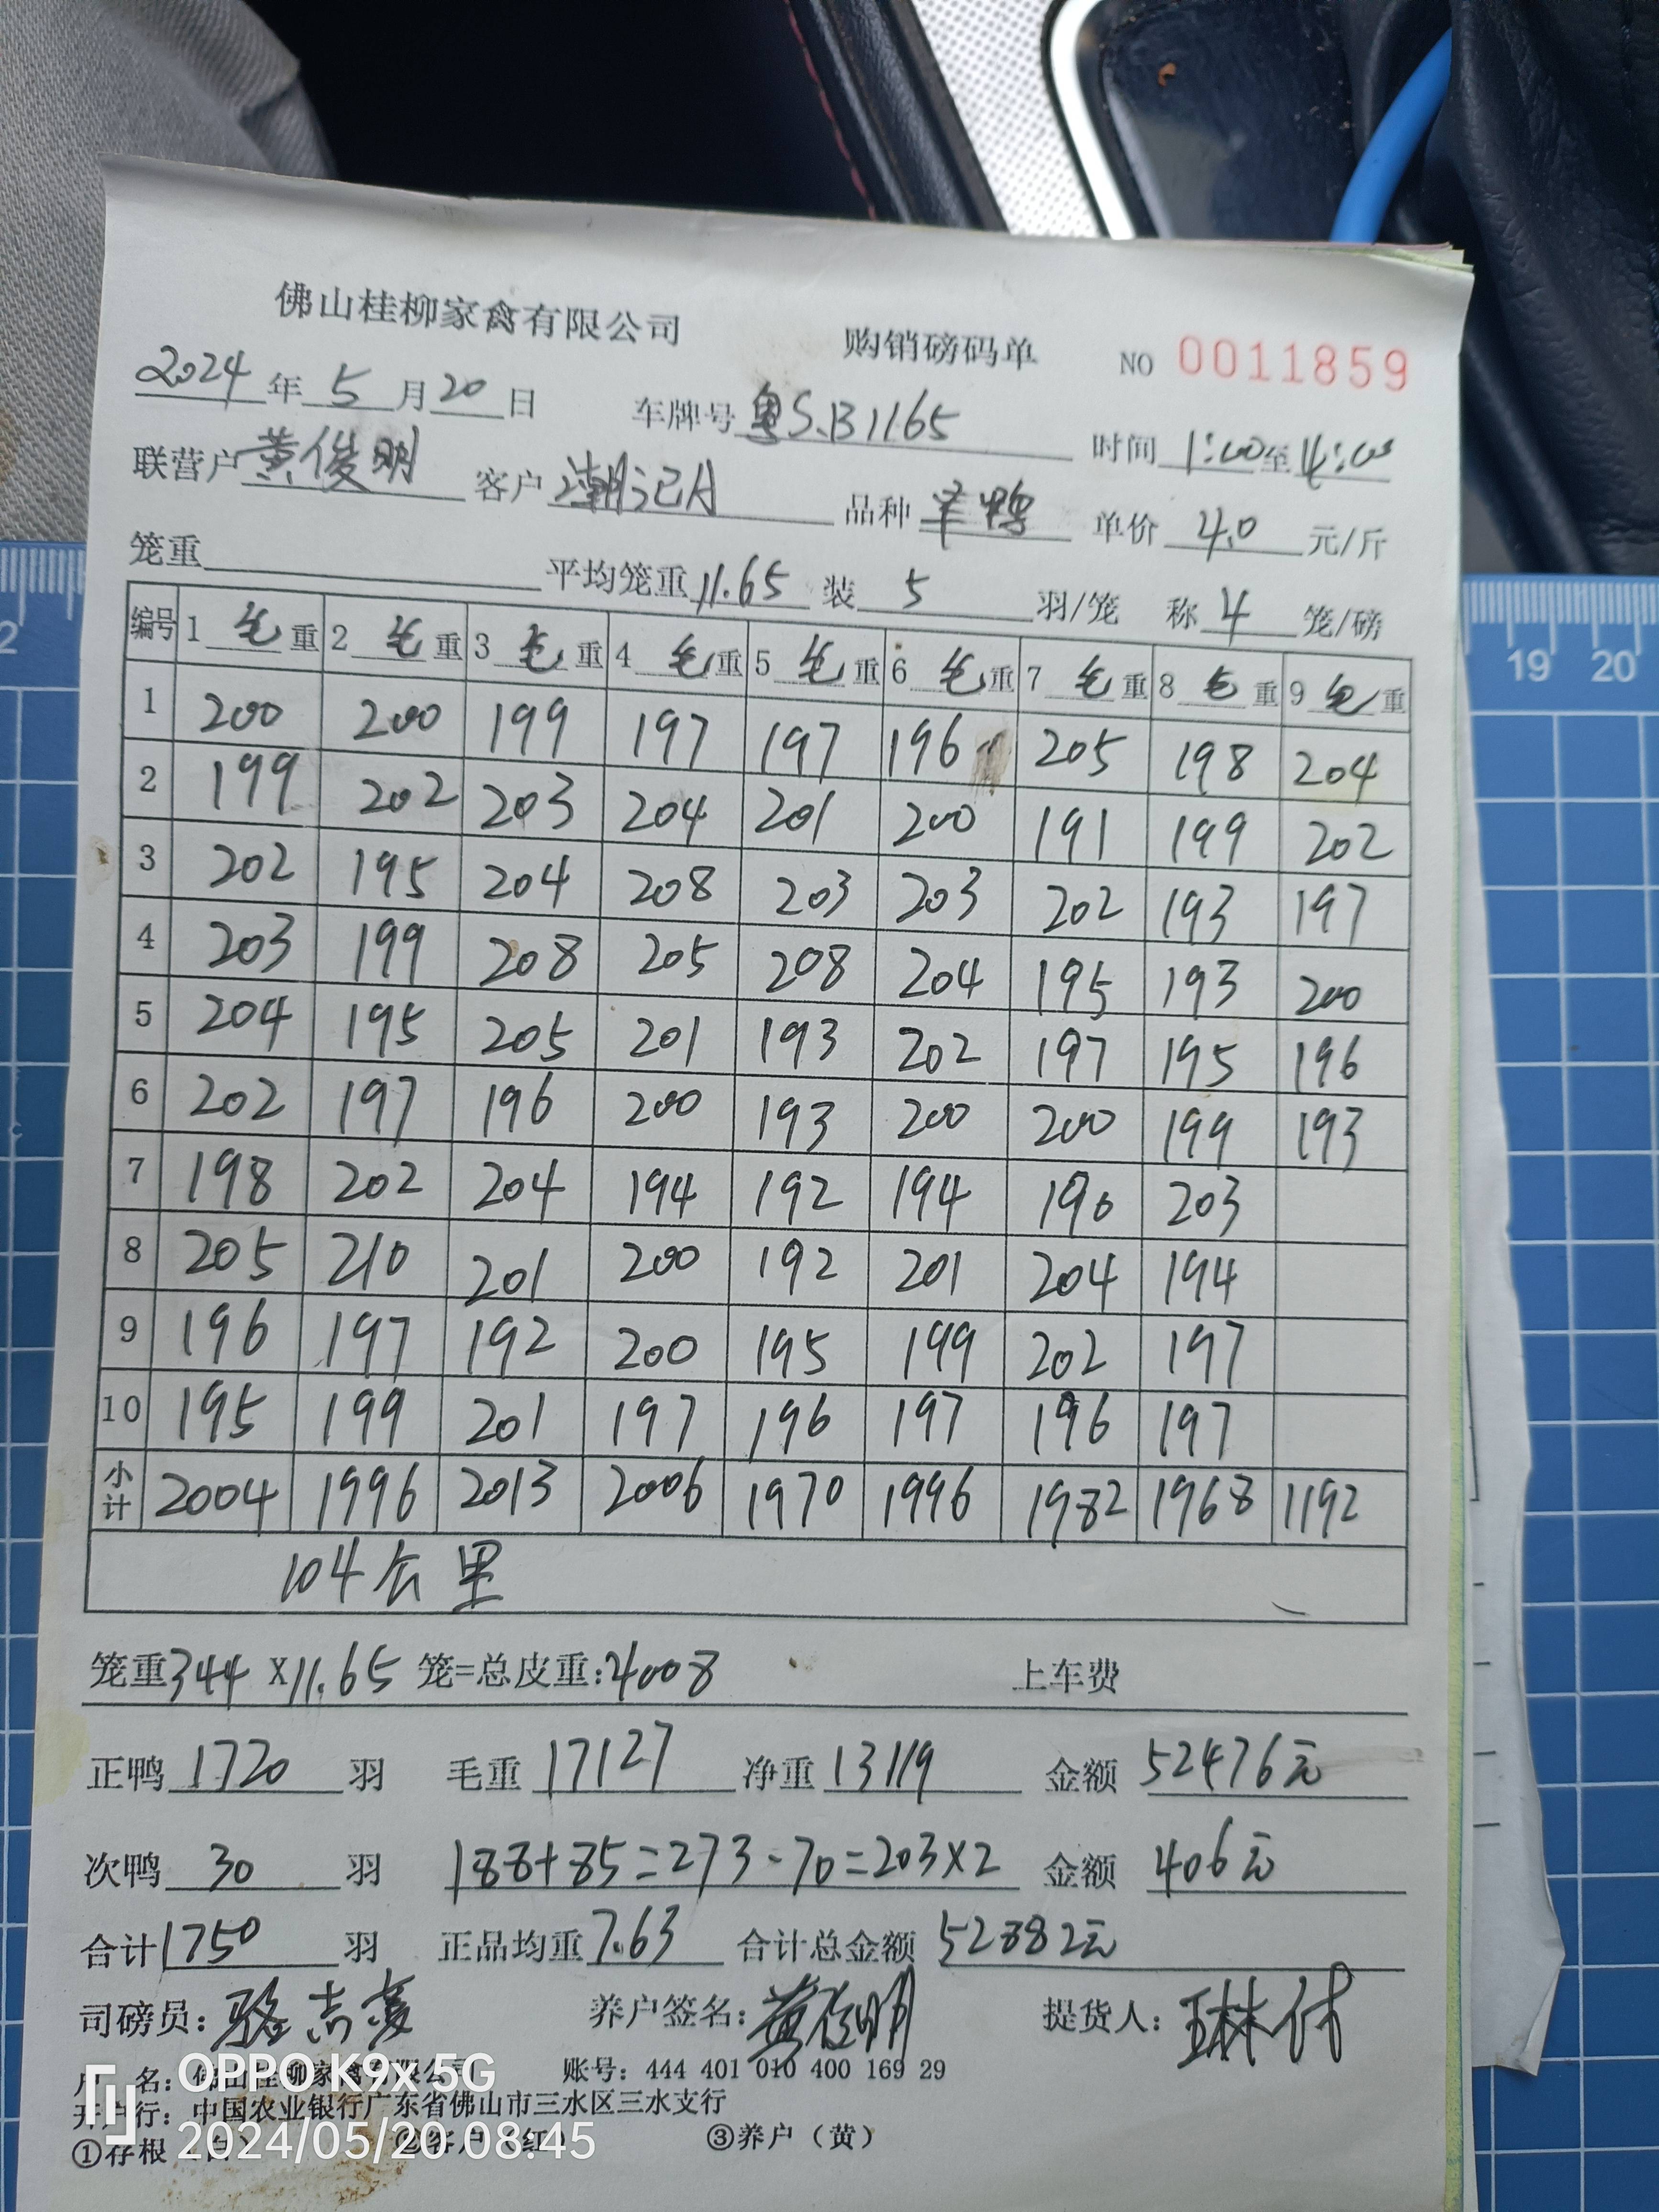 佛山桂柳家禽有限公司 购销磅码单 NO 0011859
2024年5月20日 车牌号粤S.B1165 时间1:00至4:00
联营户黄俊明 客户潮记A 品种 单价4.0元/斤
笼重 平均笼重11.65 装5羽/笼 称4笼/磅
编号 1毛重 2毛重 3毛重 4毛重 5毛重 6毛重 7毛重 8毛重 9毛重
1 200 200 199 197 197 196 205 198 204
2 199 202 203 204 201 200 191 199 202
3 202 195 204 208 203 203 202 193 197
4 203 199 208 205 208 204 195 193 200
5 204 195 205 201 193 202 197 195 196
6 202 197 196 200 193 200 200 199 193
7 198 202 204 194 192 194 190 203
8 205 210 201 200 192 201 204 194
9 196 197 192 200 195 199 202 197
10 195 199 201 197 196 197 196 197
小计 2004 1996 2013 2006 1970 1996 1982 1968 1192
104公里
笼重344X11.65笼=总皮重:4008 上车费
正鸭1720羽 毛重17127 净重13119 金额52476元
次鸭30羽 188+85=273-70=203×2 金额406元
合计1750羽 正品均重7.63 合计总金额52882元
司磅员: 养户签名:黄俊明 提货人:
户 名:佛山桂柳家禽有限公司 账号:444 401 010 400 169 29
开户行:中国农业银行广东省佛山市三水区三水支行
①存根(白) ②客户(红) ③养户(黄)
OPPO K9x 5G
2024/05/20 08:45